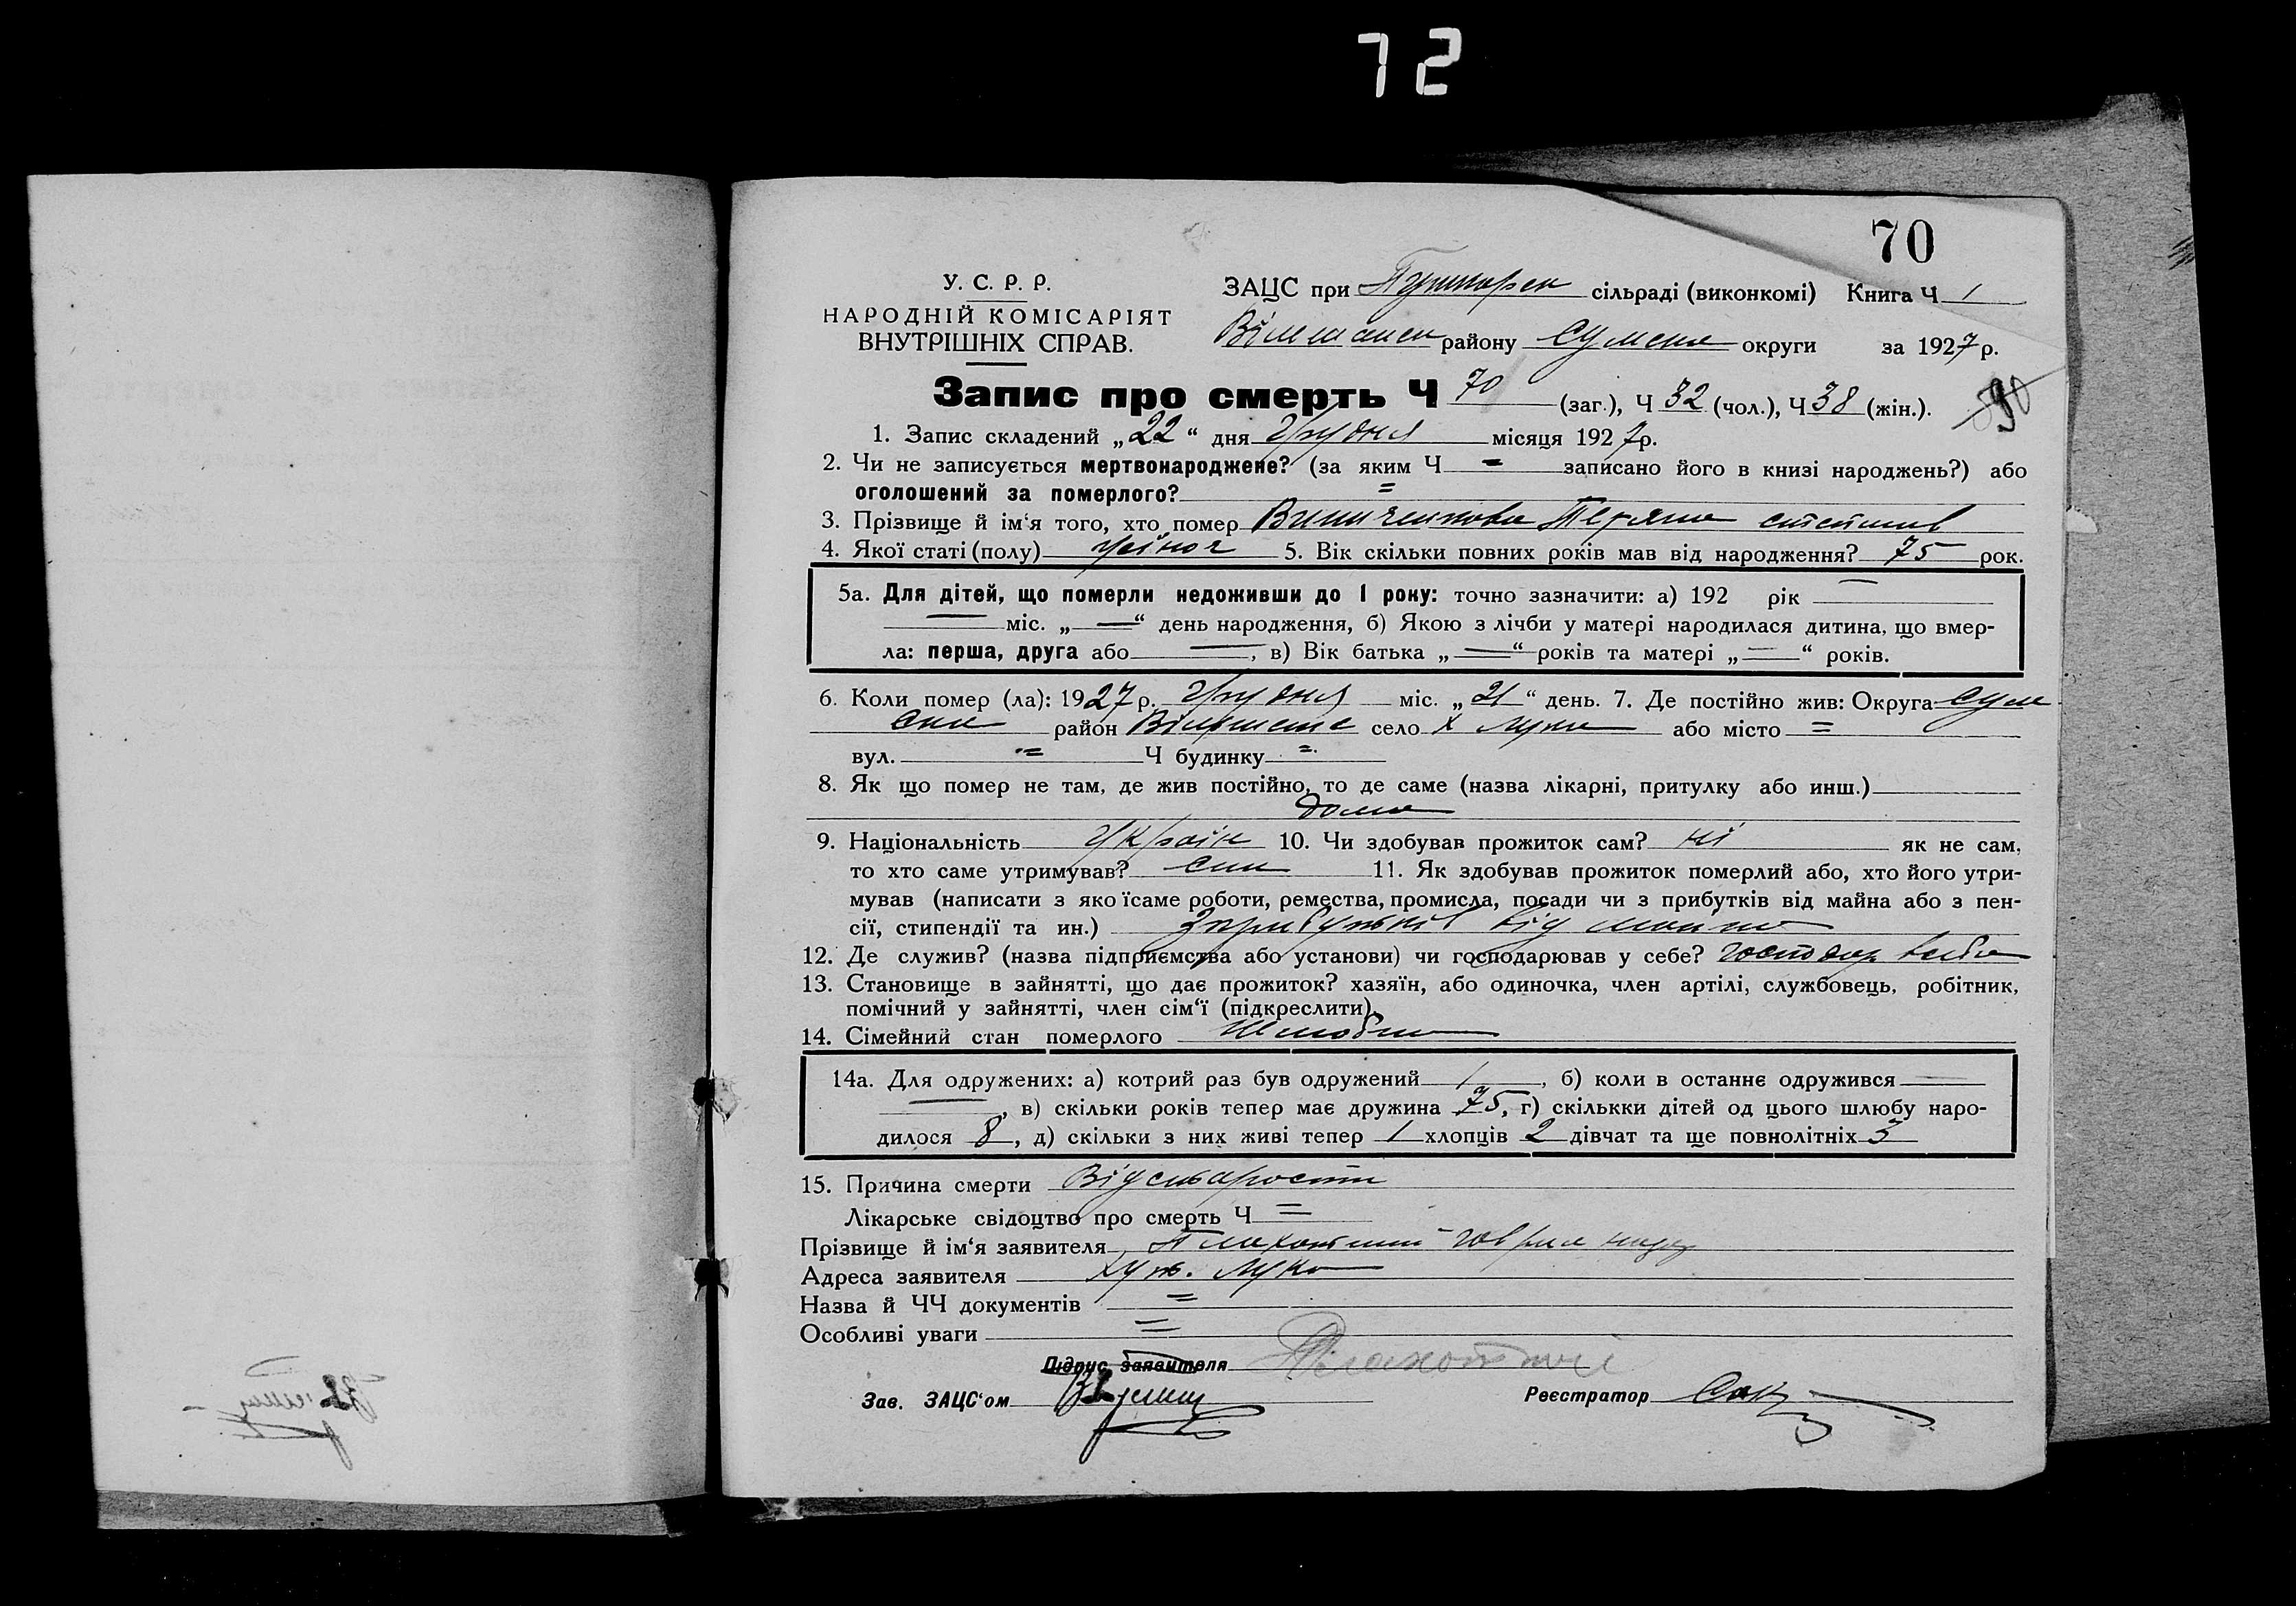 72
70
У. С. Р. Р.
НАРОДНІЙ КОМІСАРІЯТ
ВНУТРІШНІХ СПРАВ.
ЗАЦС при сільраді (виконкомі) Книга Ч 1
району Сумськ округи за 1927 р.
Запис про смерть Ч 70 (заг.), Ч 32 (чол.), Ч 38 (жін.).
1. Запис складений „22“ дня Грудня місяця 1927 р.
2. Чи не записується мертвонароджене? (за яким Ч = записано його в книзі народжень?) або
оголошений за померлого? =
3. Прізвище й ім‘я того, хто помер
4. Якої статі (полу) 5. Вік скільки повних років мав від народження? 75 рок.
5а. Для дітей, що померли недоживши до 1 року: точно зазначити: а) 192 рік —
— міс. „—“ день народження, б) Якою з лічби у матері народилася дитина, що вмер-
ла: перша, друга або —, в) Вік батька „—“ років та матері „—“ років.
6. Коли помер (ла): 1927 р. Грудня міс. „21“ день. 7. Де постійно жив: Округа Сум
ська район село х Лука або місто =
вул. = Ч будинку =
8. Як що помер не там, де жив постійно, то де саме (назва лікарні, притулку або инш.)
дома
9. Національність Україн 10. Чи здобував прожиток сам? ні як не сам,
то хто саме утримував? син 11. Як здобував прожиток померлий або, хто його утри-
мував (написати з яко їсаме роботи, ремества, промисла, посади чи з прибутків від майна або з пен-
сії, стипендії та ин.) З прибутків від майна
12. Де служив? (назва підприємства або установи) чи господарював у себе? господар
13. Становище в зайнятті, що дає прожиток? хазяїн, або одиночка, член артілі, службовець, робітник,
помічний у зайнятті, член сім‘ї (підкреслити).
14. Сімейний стан померлого
14а. Для одружених: а) котрий раз був одружений 1, б) коли в останнє одружився —
—, в) скільки років тепер має дружина 75, г) скількки дітей од цього шлюбу наро-
дилося 8, д) скільки з них живі тепер 1 хлопців 2 дівчат та ще повнолітніх 3
15. Причина смерти Від старости
Лікарське свідоцтво про смерть Ч =
Прізвище й ім‘я заявителя
Адреса заявителя хут. Лука
Назва й ЧЧ документів =
Особливі уваги =
Підпис заявителя
Зав. ЗАЦС‘ом
Реєстратор